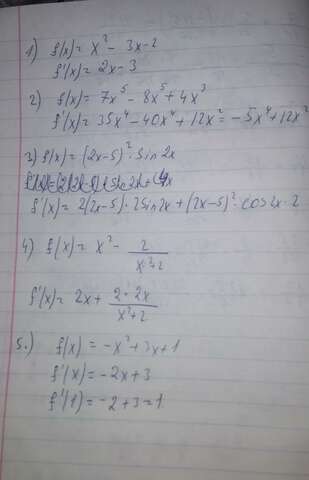 1) f(x) = x² - 3x - 2
f'(x) = 2x - 3
2) f(x) = 7x⁵ - 8x⁵ + 4x³
f'(x) = 35x⁴ - 40x⁴ + 12x² = -5x⁴ + 12x²
3) f(x) = (2x-5)² · sin2x
f'(x) = 2(2x-5) · 2sin2x + (2x-5)² · cos2x · 2
4) f(x) = x² - 2/(x²+2)
f'(x) = 2x + (2·2x)/(x²+2)
5.) f(x) = -x² + 3x + 1
f'(x) = -2x + 3
f'(1) = -2 + 3 = 1